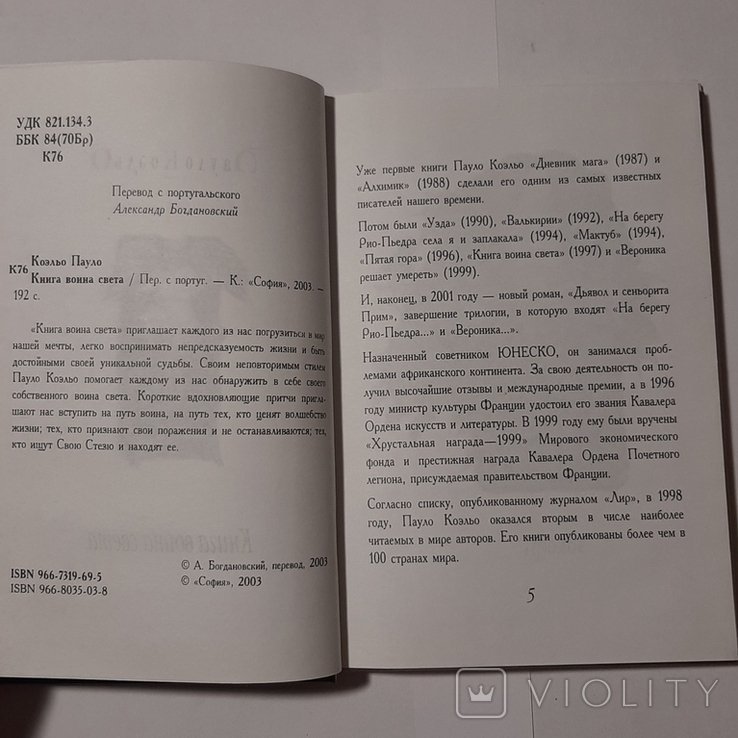 УДК 821.134.3
ББК 84(70Бр)
К76
Перевод с португальского
Александр Богдановский
Коэльо Пауло
К76
Книга воина света / Пер. с португ. — К.: «София», 2003. —
192 с.
«Книга воина света» приглашает каждого из нас погрузиться в мир
нашей мечты, легко воспринимать непредсказуемость жизни и быть
достойными своей уникальной судьбы. Своим неповторимым стилем
Пауло Коэльо помогает каждому из нас обнаружить в себе своего
собственного воина света. Короткие вдохновляющие притчи пригла-
шают нас вступить на путь воина, на путь тех, кто ценят волшебство
жизни; тех, кто признают свои поражения и не останавливаются; тех,
кто ищут Свою Стезю и находят ее.
Книга воина света
ISBN 966-7319-69-5
ISBN 966-8035-03-8
© А. Богдановский, перевод, 2003
© «София», 2003
Уже первые книги Пауло Коэльо «Дневник мага» (1987) и
«Алхимик» (1988) сделали его одним из самых известных
писателей нашего времени.
Потом были «Узда» (1990), «Валькирии» (1992), «На берегу
Рио-Пьедра села я и заплакала» (1994), «Мактуб» (1994),
«Пятая гора» (1996), «Книга воина света» (1997) и «Вероника
решает умереть» (1999).
И, наконец, в 2001 году — новый роман, «Дьявол и сеньорита
Прим», завершение трилогии, в которую входят «На берегу
Рио-Пьедра...» и «Вероника...».
Назначенный советником ЮНЕСКО, он занимался проб-
лемами африканского континента. За свою деятельность он по-
лучил высочайшие отзывы и международные премии, а в 1996
году министр культуры Франции удостоил его звания Кавалера
Ордена искусств и литературы. В 1999 году ему были вручены
«Хрустальная награда—1999» Мирового экономического
фонда и престижная награда Кавалера Ордена Почетного
легиона, присуждаемая правительством Франции.
Согласно списку, опубликованному журналом «Лир», в 1998
году, Пауло Коэльо оказался вторым в числе наиболее
читаемых в мире авторов. Его книги опубликованы более чем в
100 странах мира.
5
VIOLITY